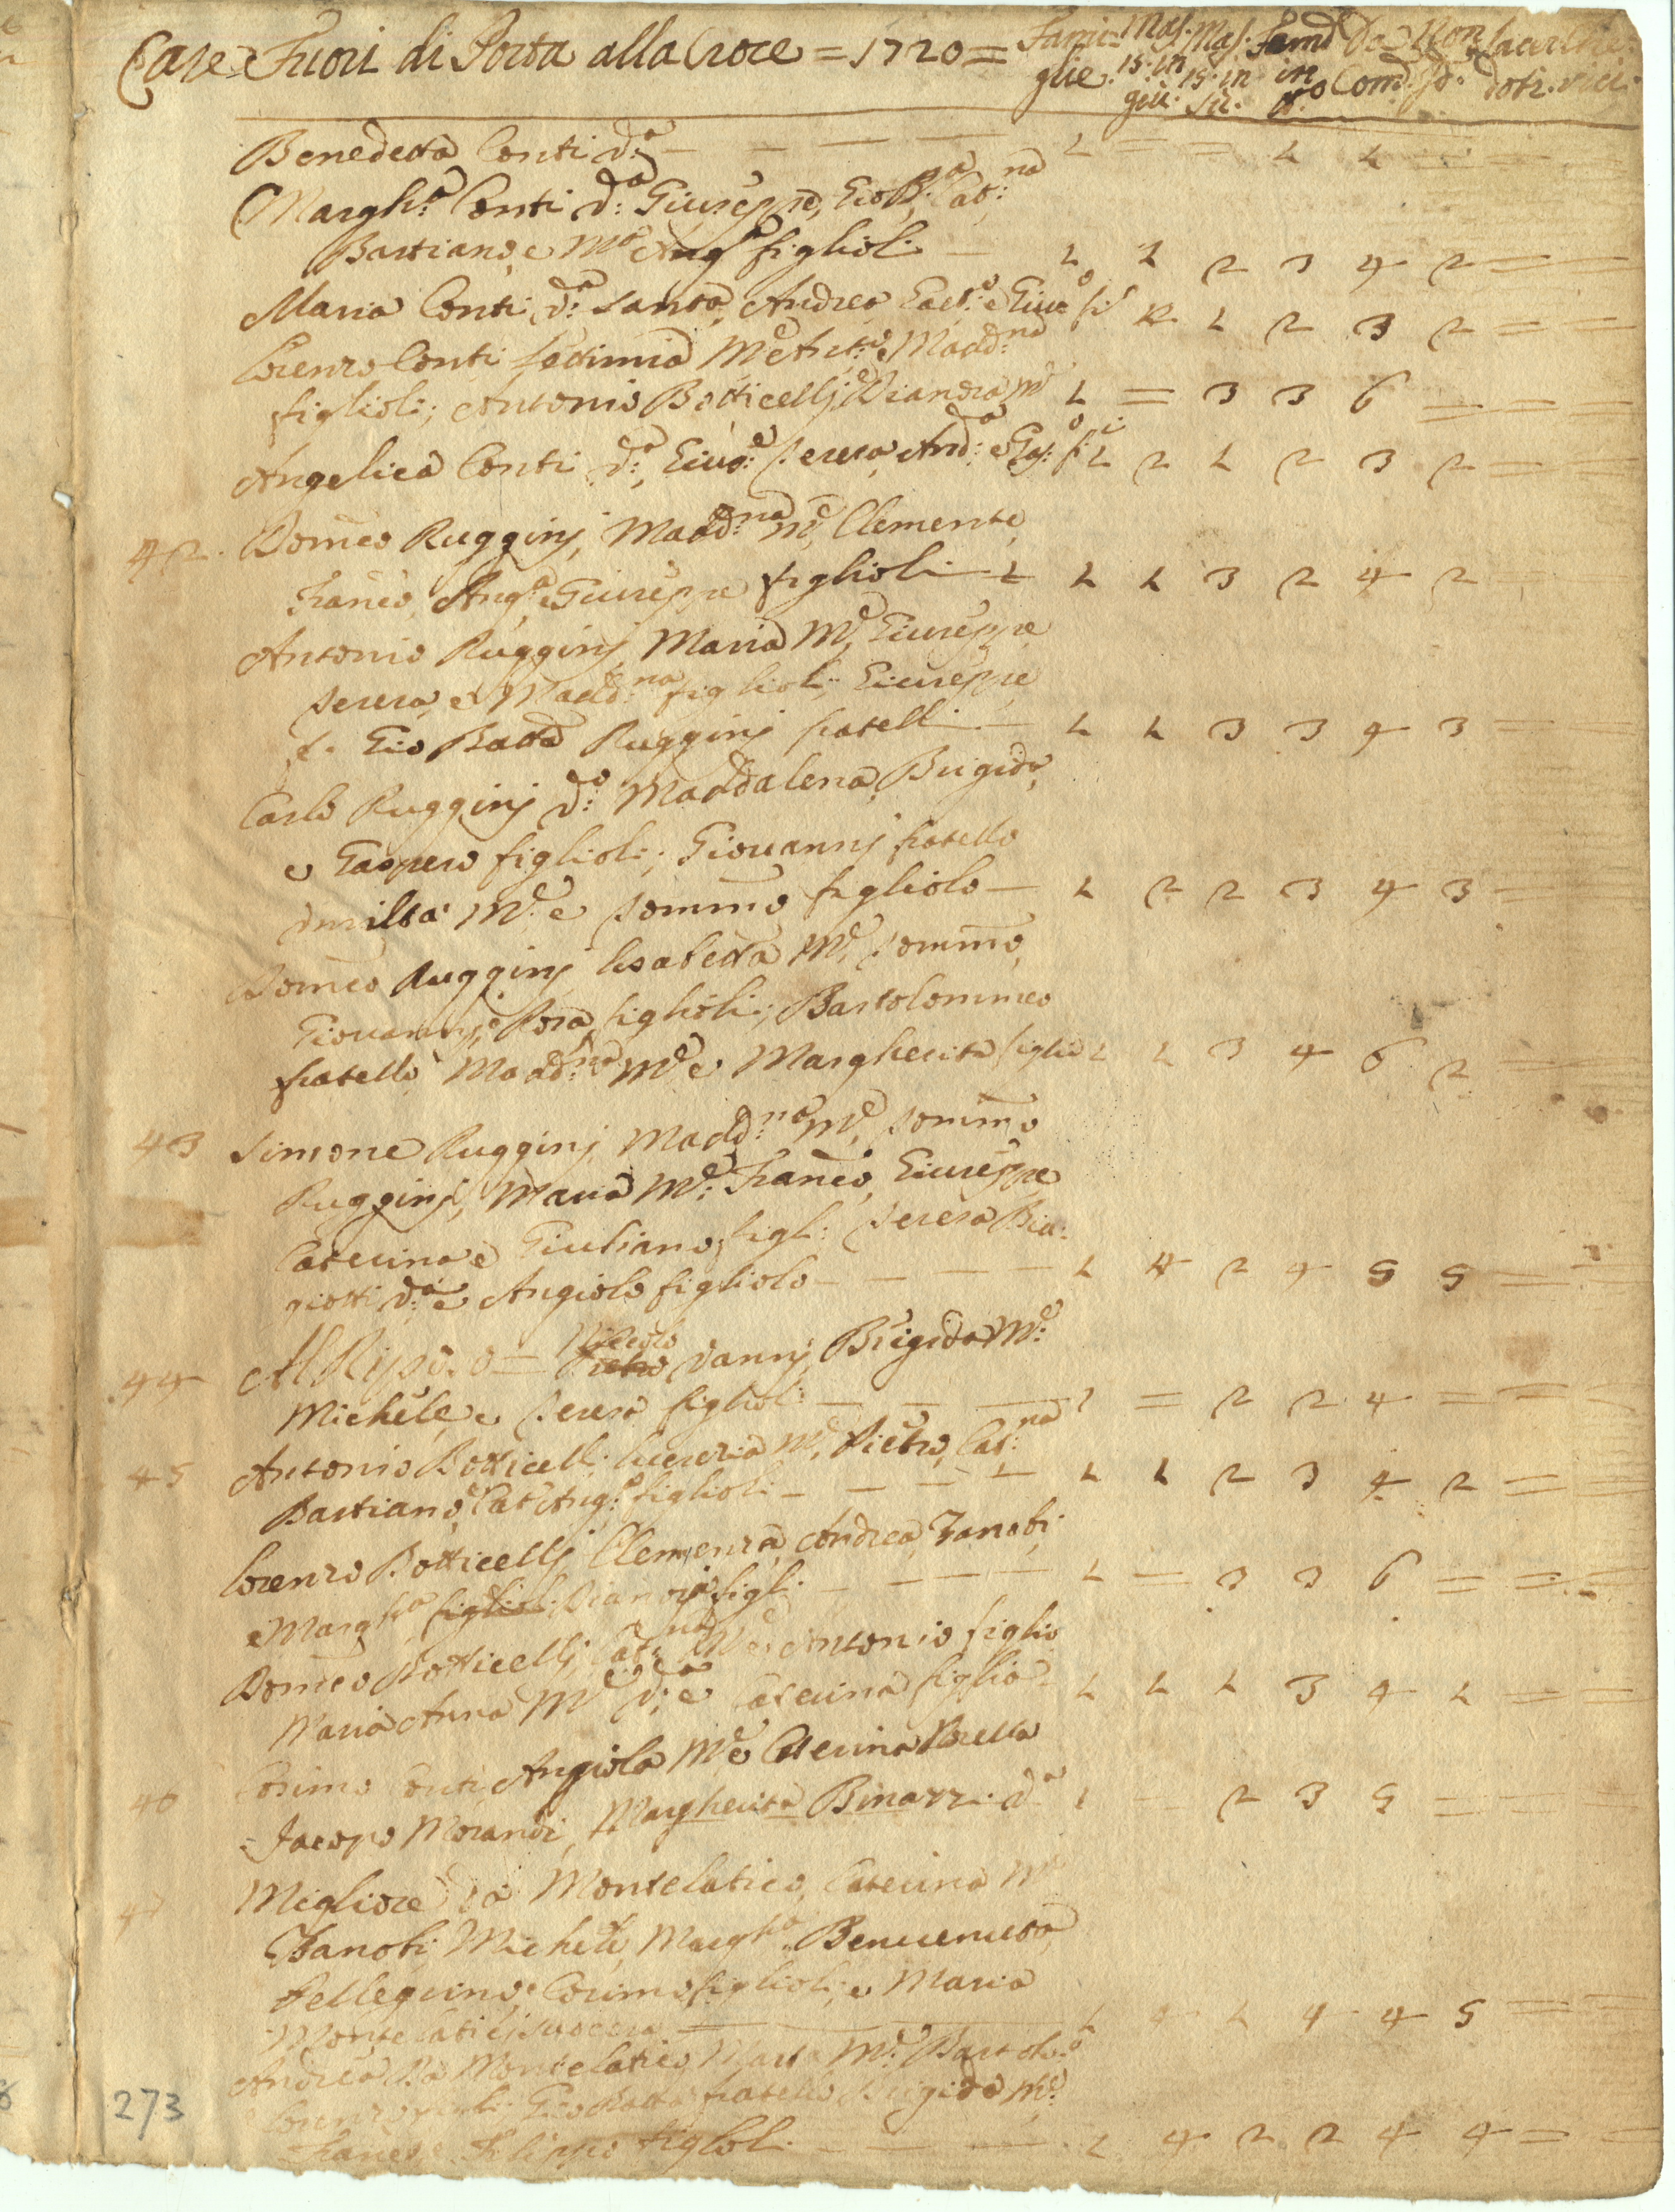 Case Fuori di Porta alla Croce = 1720 = Fami= Mas. Mas. Fem. Da Non Sacer Che=
glie. 15: in 15: in in Com. Co: doti. rici.
giù. sù. N.o
Benedetta Conti d:a — — — — 1 = = 1 1 = = =
Margh:a Conti d:a Giuseppe, Gio B:a Cat:na
Bastiano, e M:a Ang:a figlioli — 1 1 2 3 4 2 = =
Maria Conti, d:a Santa, Andrea Gaet:o e Giuo fi: 2 1 2 3 2 = =
Lorenzo Conti Fedimia M:e Ant:o e Madd:na
figlioli; Antonio Botticellj, e Diandra M:e 1 = 3 3 6 = = =
Angelica Conti d:a, Gius:e Teresa And:a e Gas:o f:i 1 2 1 2 3 2 = =
42. Dom̃co Rugginj, Madd:na M:e, Clemente,
Franc̃o, Ang:a, e Giuseppe figlioli — 1 1 1 3 2 4 2 =
Antonio Rugginj Maria M:e, Giuseppe
Teresa, e Madd:na figlioli; Giuseppe
e Gio Batta Rugginj fratelli — 1 1 3 3 4 3 =
Carlo Rugginj d:o Maddalena, Brigida,
e Gaspero figlioli; Giovannj fratello
Umilta M:e e Tomm̃o figliolo — 1 2 2 3 4 3 =
Dom̃co Rugginj Lisabetta M:e, Tomm̃o,
Giovannj, e Rosa figlioli; Bartolommeo
fratello Madd:na M:e e Margherita figlia 1 1 3 4 6 2 =
43 Simone Rugginj Madd:na M:e, Tomm̃o
Rugginj, Maria M:e Franc̃o, Giuseppe
Caterina e Giuliano, figl: Teresa Bia:
giotti d:a e Angiolo figliolo — — — — 1 4 2 4 5 5 = =
44 Al Riposo = Niccolo Vannj, Brigida M:e
Michele, e Teresa figlioli — — — 1 = 2 2 4 = = =
45 Antonio Botticelli Lucrezia M:e, Pietro, Cat:na
Bastiano, e Cat: Ang:a figlioli — — — — 1 1 2 3 4 2 = =
Lorenzo Botticellj Clemenza, Andrea, Zanobi,
e Margh:a figlioli Dianora figl: — — — — 1 = 3 3 6 = = =
Dom̃co Botticellj, Cat:na M:e e Antonio figlio
Maria Anna M:e d:a e Caterina figlia 1 1 1 3 4 1 = =
46 Cosimo Conti, Angiola M:e Caterina Sorella
Jacopo Morandi, Margherita Binazzi d:a 1 — 2 3 5 = = =
47 Migliore da Montelatico, Caterina M:e
Zanobi, Michele, Margh:a Benvenuta
Pellegrino, e Cosimo figlioli, e Maria
Montelatici suocera — 1 4 1 4 4 5 = =
Andrea da Montelatico Marta M:e Bartolo:o
Lorenzo figli: Gio Batta fratello, Brigida M:e
Franc̃o, e Filippo figlioli — — — 1 4 2 2 4 4 = =
273